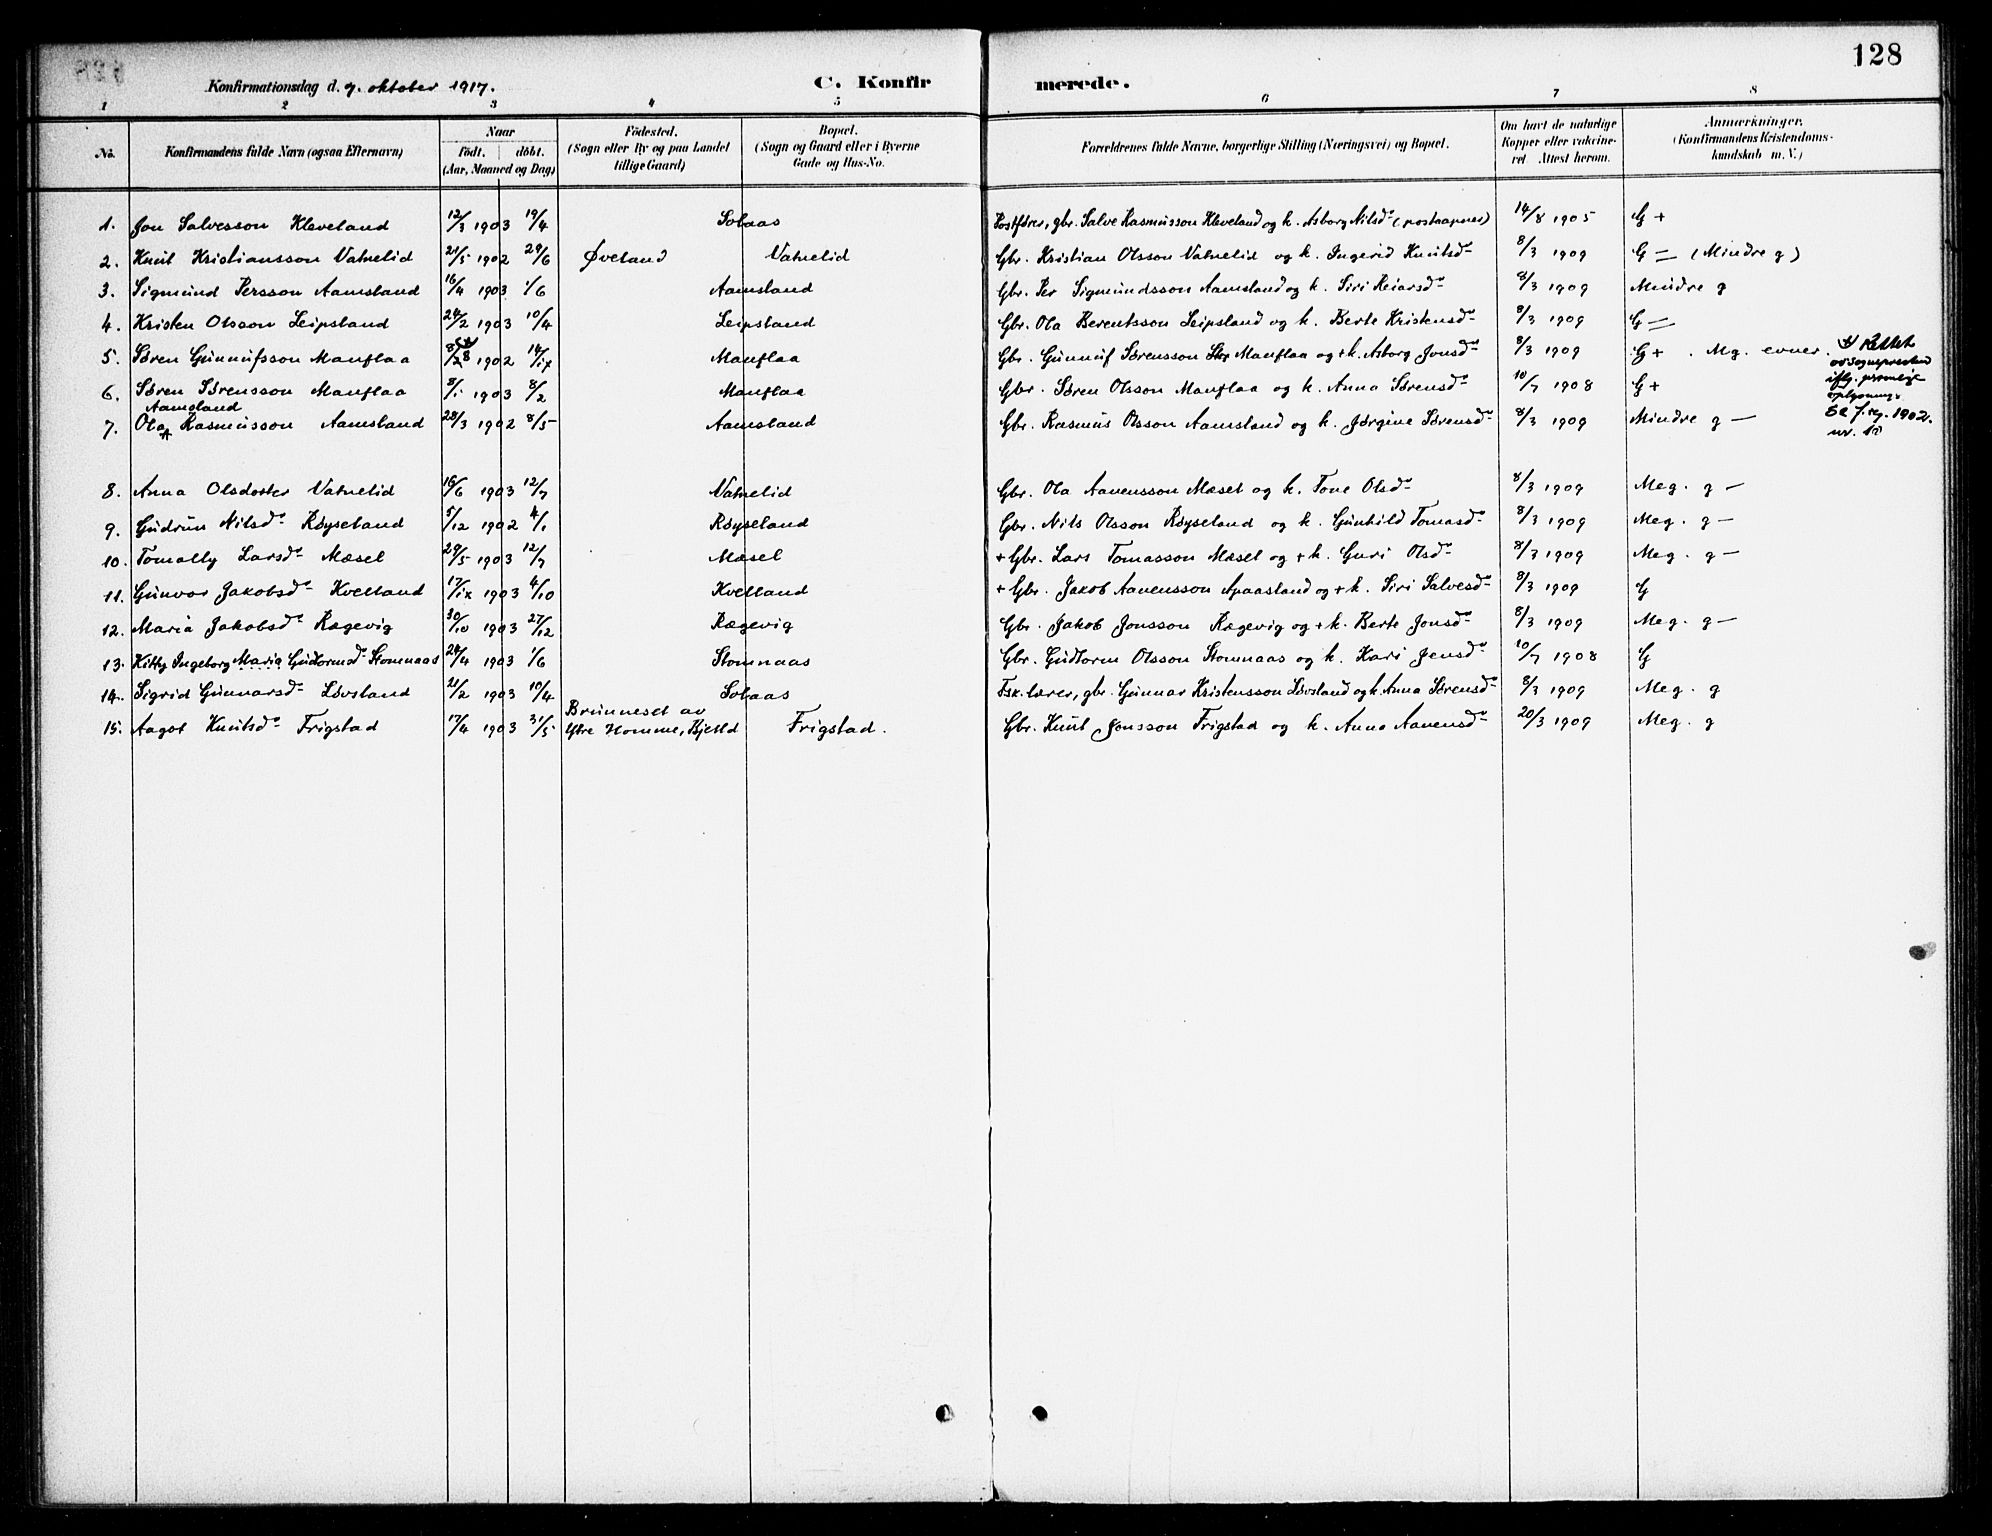 128
Konfirmationsdag d. 7. oktober 1917. C. Konfir merede.
1 2 3 4 5 6 7 8
No. Konfirmandens fulde Navn (ogsaa Efternavn) Naar Födt. döbt. (Aar, Maaned og Dag) Födested. (Sogn eller By og paa Landet tillige Gaard) Bopæl. (Sogn og Gaard eller i Byerne Gade og Hus-No. Forældrenes fulde Navne, borgerlige Stilling (Næringsvei) og Bopæl. Om havt de naturlige Kopper eller vakcineret Attest herom. Anmærkninger. (Konfirmandens Kristendomskundskab m. V.)
1. Jon Salvesson Kleveland 12/3 1903 19/4 Solaas Postfører, gbr. Salve Rasmusson Kleveland og k. Asborg Nilsd (postaapner) 14/8 1905 G +
2. Knut Kristiansson Vatnelid 21/5 1902 29/6 Øveland Vatnelid Gbr. Kristian Olsson Vatnelid og k. Ingerid Knutsd 8/3 1909 G = (Mindre g)
3. Sigmund Persson Aamsland 16/4 1903 1/6 Aamsland Gbr. Per Sigmundsson Aamsland og k. Siri Reiarsd 8/3 1909 Mindre g
4. Kristen Olsson Leipsland 24/2 1903 10/4 Leipsland Gbr. Ola Berentsson Leipsland og k. Berte Kristensd 8/3 1909 G =
5. Søren Gunnufsson Manflaa 1902 14/ix Manflaa Gbr. Gunnuf Sørensson Manflaa og + k. Asborg Jonsd 8/3 1909 G + . Mg. evner. Rettet
av sognepresten
iflg.
oplysning.
Se f.reg. 1902.
nr.
6. Søren Sørensson Manflaa 5/1 1903 8/2 Manflaa Gbr. Søren Olsson Manflaa og k. Anna Sørensd 10/7 1908 G +
Aamsland
7. Ola Rasmusson Aamsland 28/3 1902 8/5 Aamsland Gbr. Rasmus Olsson Aamsland og k. Jørgine Sørensd 8/3 1909 Mindre g —
8. Anna Olsdotter Vatnelid 16/6 1903 12/7 Vatnelid Gbr. Ola Aanensson Mæsel og k. Tone Olsd 8/3 1909 Meg. g —
9. Gudrun Nilsd Røyseland 5/12 1902 4/1 Røyseland Gbr. Nils Olsson Røyseland og k. Gunhild Tomasd 8/3 1909 Meg. g —
10. Tomally Larsd Mæsel 29/5 1903 12/7 Mæsel + Gbr. Lars Tomasson Mæsel og + k. Guri Olsd 8/3 1909 Meg. g —
11. Gunvor Jakobsd Kvelland 17/ix 1903 4/10 Kvelland + Gbr. Jakob Aanensson Apaasland og + k. Siri Salvesd 8/3 1909 G
12. Maria Jakobsd Rægevig 30/10 1903 27/12 Rægevig Gbr. Jakob Jonsson Rægevig og + k. Berte Jonsd 8/3 1909 Meg. g —
13. Kitty Ingeborg Maria Gudtormsd Stomnaas 24/4 1903 1/6 Stomnaas Gbr. Gudtorm Olsson Stomnaas og k. Kari Jensd 10/7 1908 G
14. Sigrid Gunnarsd Løvsland 21/2 1903 10/4 Solaas Fsk. lærer, gbr. Gunnar Kristensson Løvsland og k. Anna Sørensd 8/3 1909 Meg. g
15. Aagot Knutsd Frigstad 17/4 1903 31/5 Brunneset av Ytre Homme, Bjelld Frigstad. Gbr. Knut Jonsson Frigstad og k. Anna Aanensd 20/3 1909 Meg. g